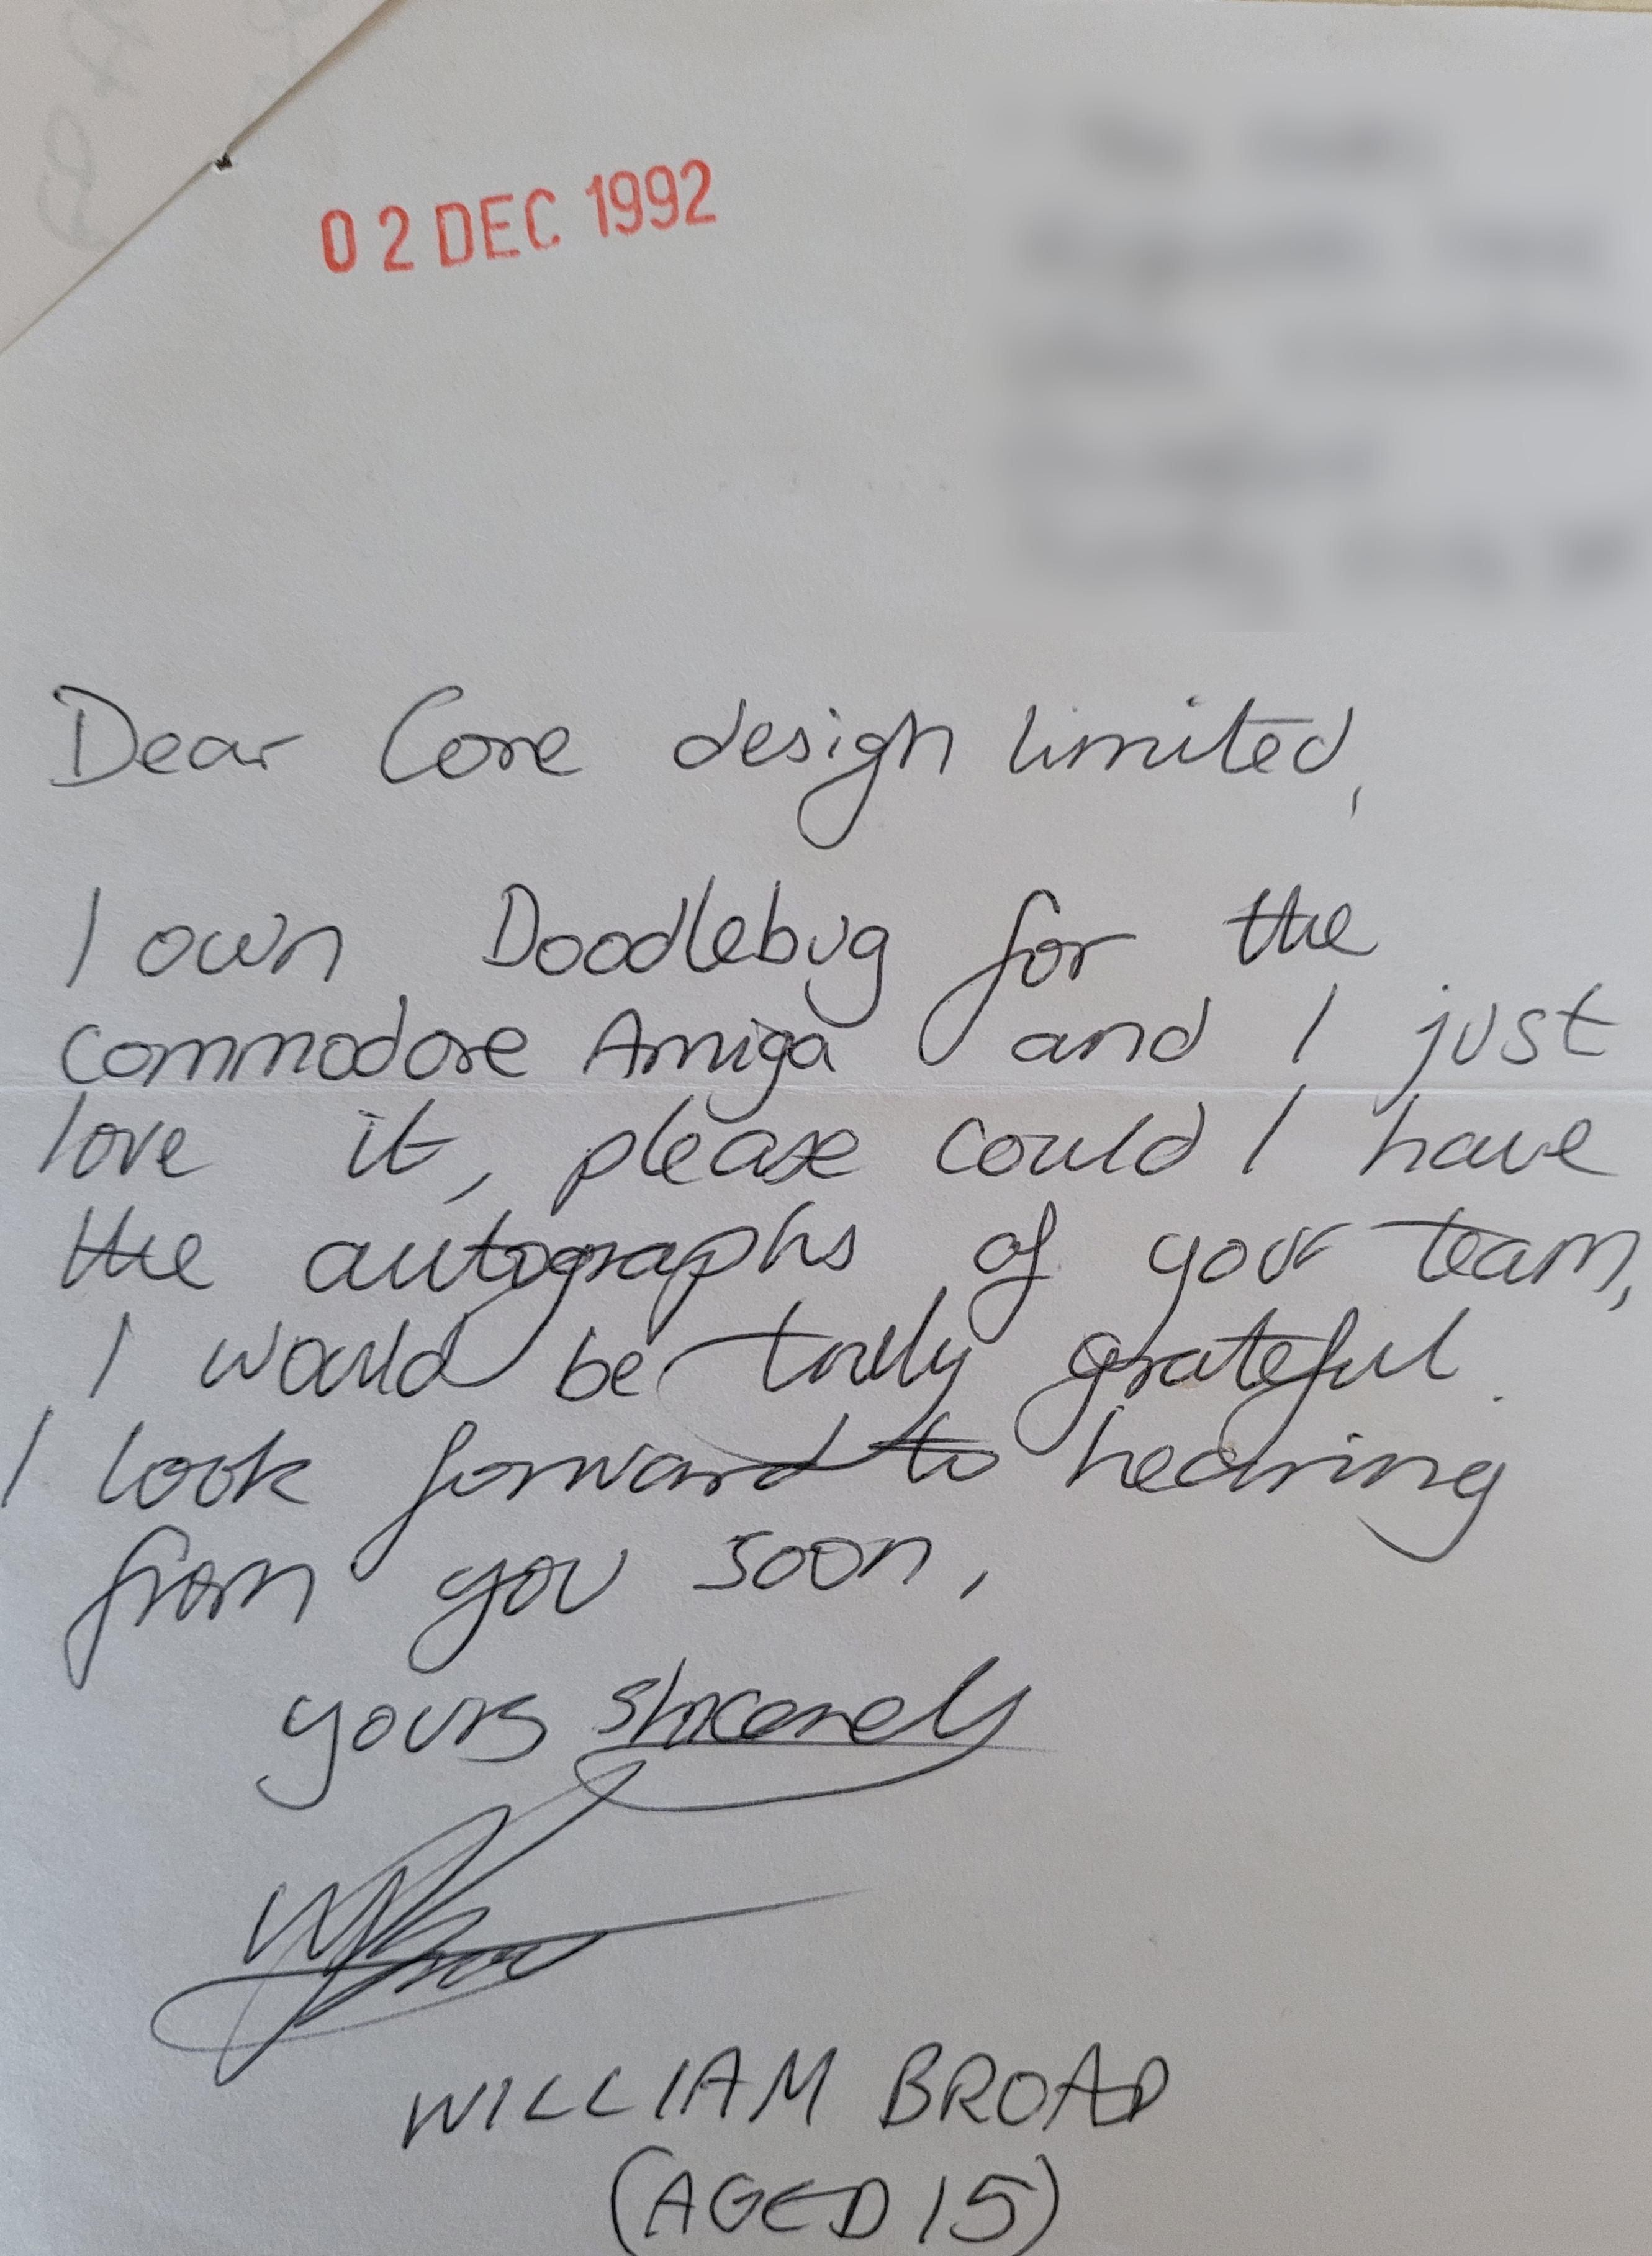 02 DEC 1992
Dear Core design limited,
I own Doodlebug for the
commodore Amiga and I just
love it, please could I have
the autographs of your team,
I would be trully grateful.
I look forward to hearing
from you soon,
yours sincerely
WILLIAM BROAD
(AGED 15)